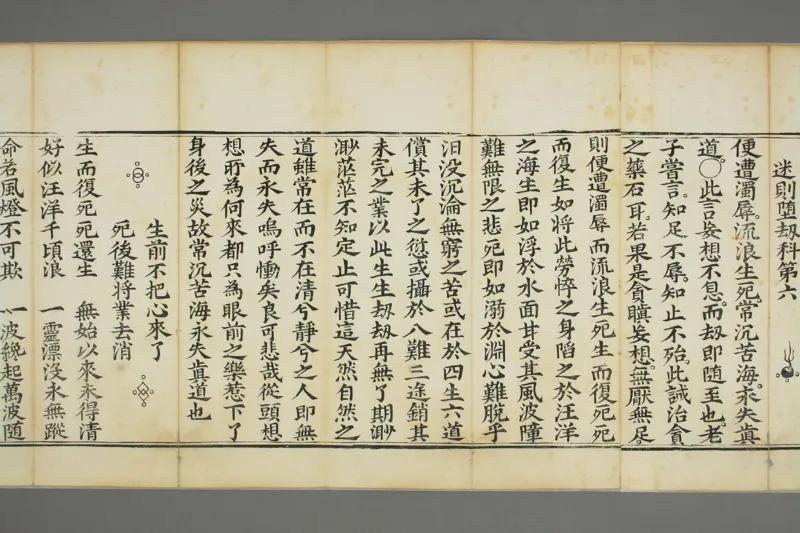 迷則墮劫科第六
便遭濁辱。流浪生死常沉苦海。永失眞
道。〇此言妄想不息。而劫即随至也。老
子嘗言。知足不辱。知止不殆。此誡治貪
之藥石耳。若果是貪瞋妄想。無厭無足。
則便遭濁辱而流浪生死生而復死死
而復生如將此勞悴之身陷之於汪洋
之海生即如浮於水面甘受其風波障
難無限之悲死即如溺於淵心難脱乎
汨没沉淪無窮之苦或在於四生六道
償其未了之愆或攝於八難三途銷其
未完之業以此生生劫劫再無了期渺
渺茫茫不知定止可惜這天然自然之
道雖常在而不在清兮靜兮之人即無
失而永失嗚呼慟矣良可悲哉從頭想
想所為何來都只為眼前之樂惹下了
身後之災故常沉苦海永失眞道也
生前不把心來了
死後難將業去消
生而復死死還生　無始以來未得清
好似汪洋千頃浪　一靈漂沒永無蹤
命若風燈不可欺　一波纔起萬波随